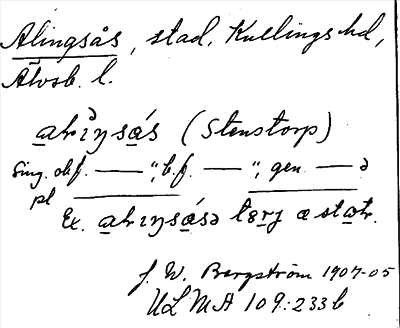 Alingsås, stad, Kullings hd,
Älvsb. l.
alıŋsås (Stenstorp)
Sing. obf. — "; b.f. — "; gen — ə
pl
Ex. alıŋsåsə torj æ stor.
J. W. Bergström 1904-05
ULMA 109:233b